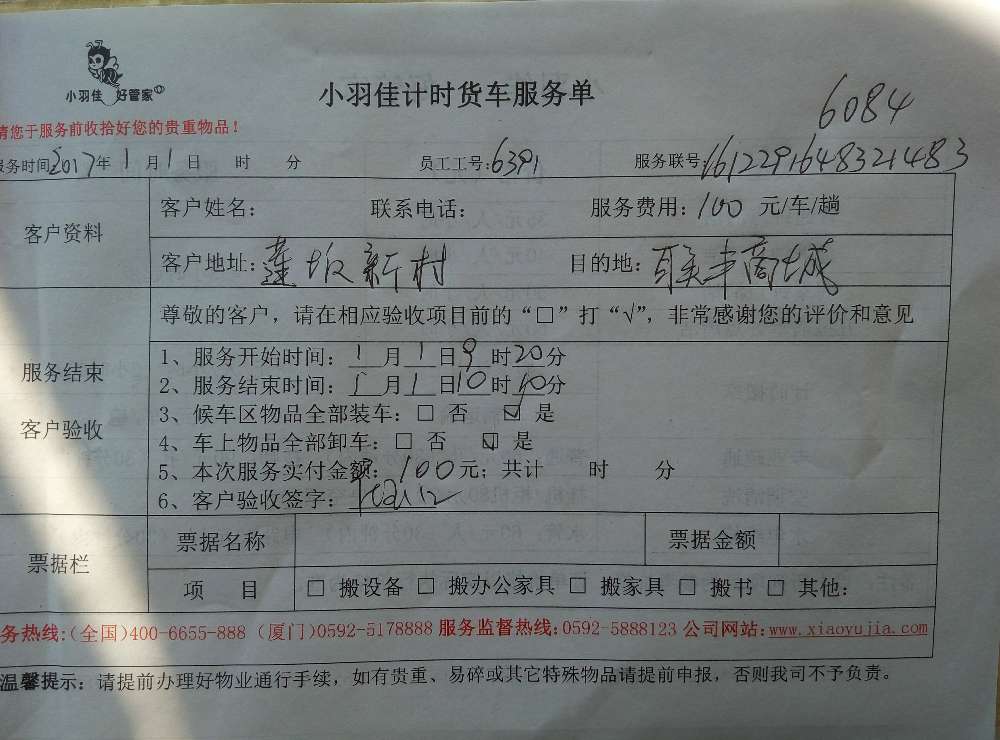 小羽佳 好管家
小羽佳计时货车服务单
6084
请您于服务前收拾好您的贵重物品！
服务时间2017年1月1日 时 分 员工工号:6391 服务联号:161229164832148​3
客户资料
客户姓名： 联系电话： 服务费用：100元/车/趟
客户地址：莲坂新村 目的地：联丰商城
服务结束
客户验收
尊敬的客户，请在相应验收项目前的“□”打“√”，非常感谢您的评价和意见
1、服务开始时间：1月1日9时20分
2、服务结束时间：1月1日10时10分
3、候车区物品全部装车：□ 否 ☑ 是
4、车上物品全部卸车：□ 否 ☑ 是
5、本次服务实付金额：100元；共计 时 分
6、客户验收签字：
票据栏
票据名称 票据金额
项 目 □ 搬设备 □ 搬办公家具 □ 搬家具 □ 搬书 □ 其他：
务热线:(全国)400-6655-888 (厦门)0592-5178888 服务监督热线:0592-5888123 公司网站:www.xiaoyujia.com
温馨提示：请提前办理好物业通行手续，如有贵重、易碎或其它特殊物品请提前申报，否则我司不予负责。